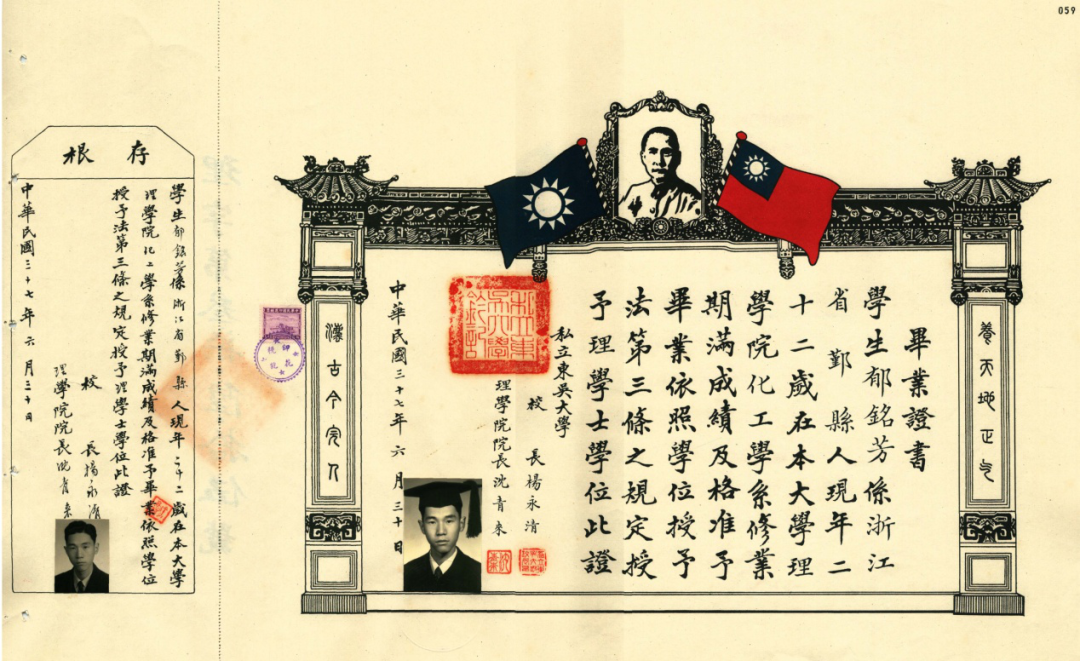 059
畢業證書
學生郁銘芳係浙江
省鄞縣人現年二
十二歲在本大學理
學院化工學系修業
期滿成績及格准予
畢業依照學位授予
法第三條之規定授
予理學士學位此證
私立東吳大學
校長楊永清
理學院院長沈青來
中華民國三十七年六月三十日
養天地正气
法古今完人
存根
學生郁銘芳係浙江省鄞縣人現年二十二歲在本大學
理學院化工學系修業期滿成績及格准予畢業依照學位
授予法第三條之規定授予理學士學位此證
校長楊永清
理學院院長沈青來
中華民國三十七年六月三十日